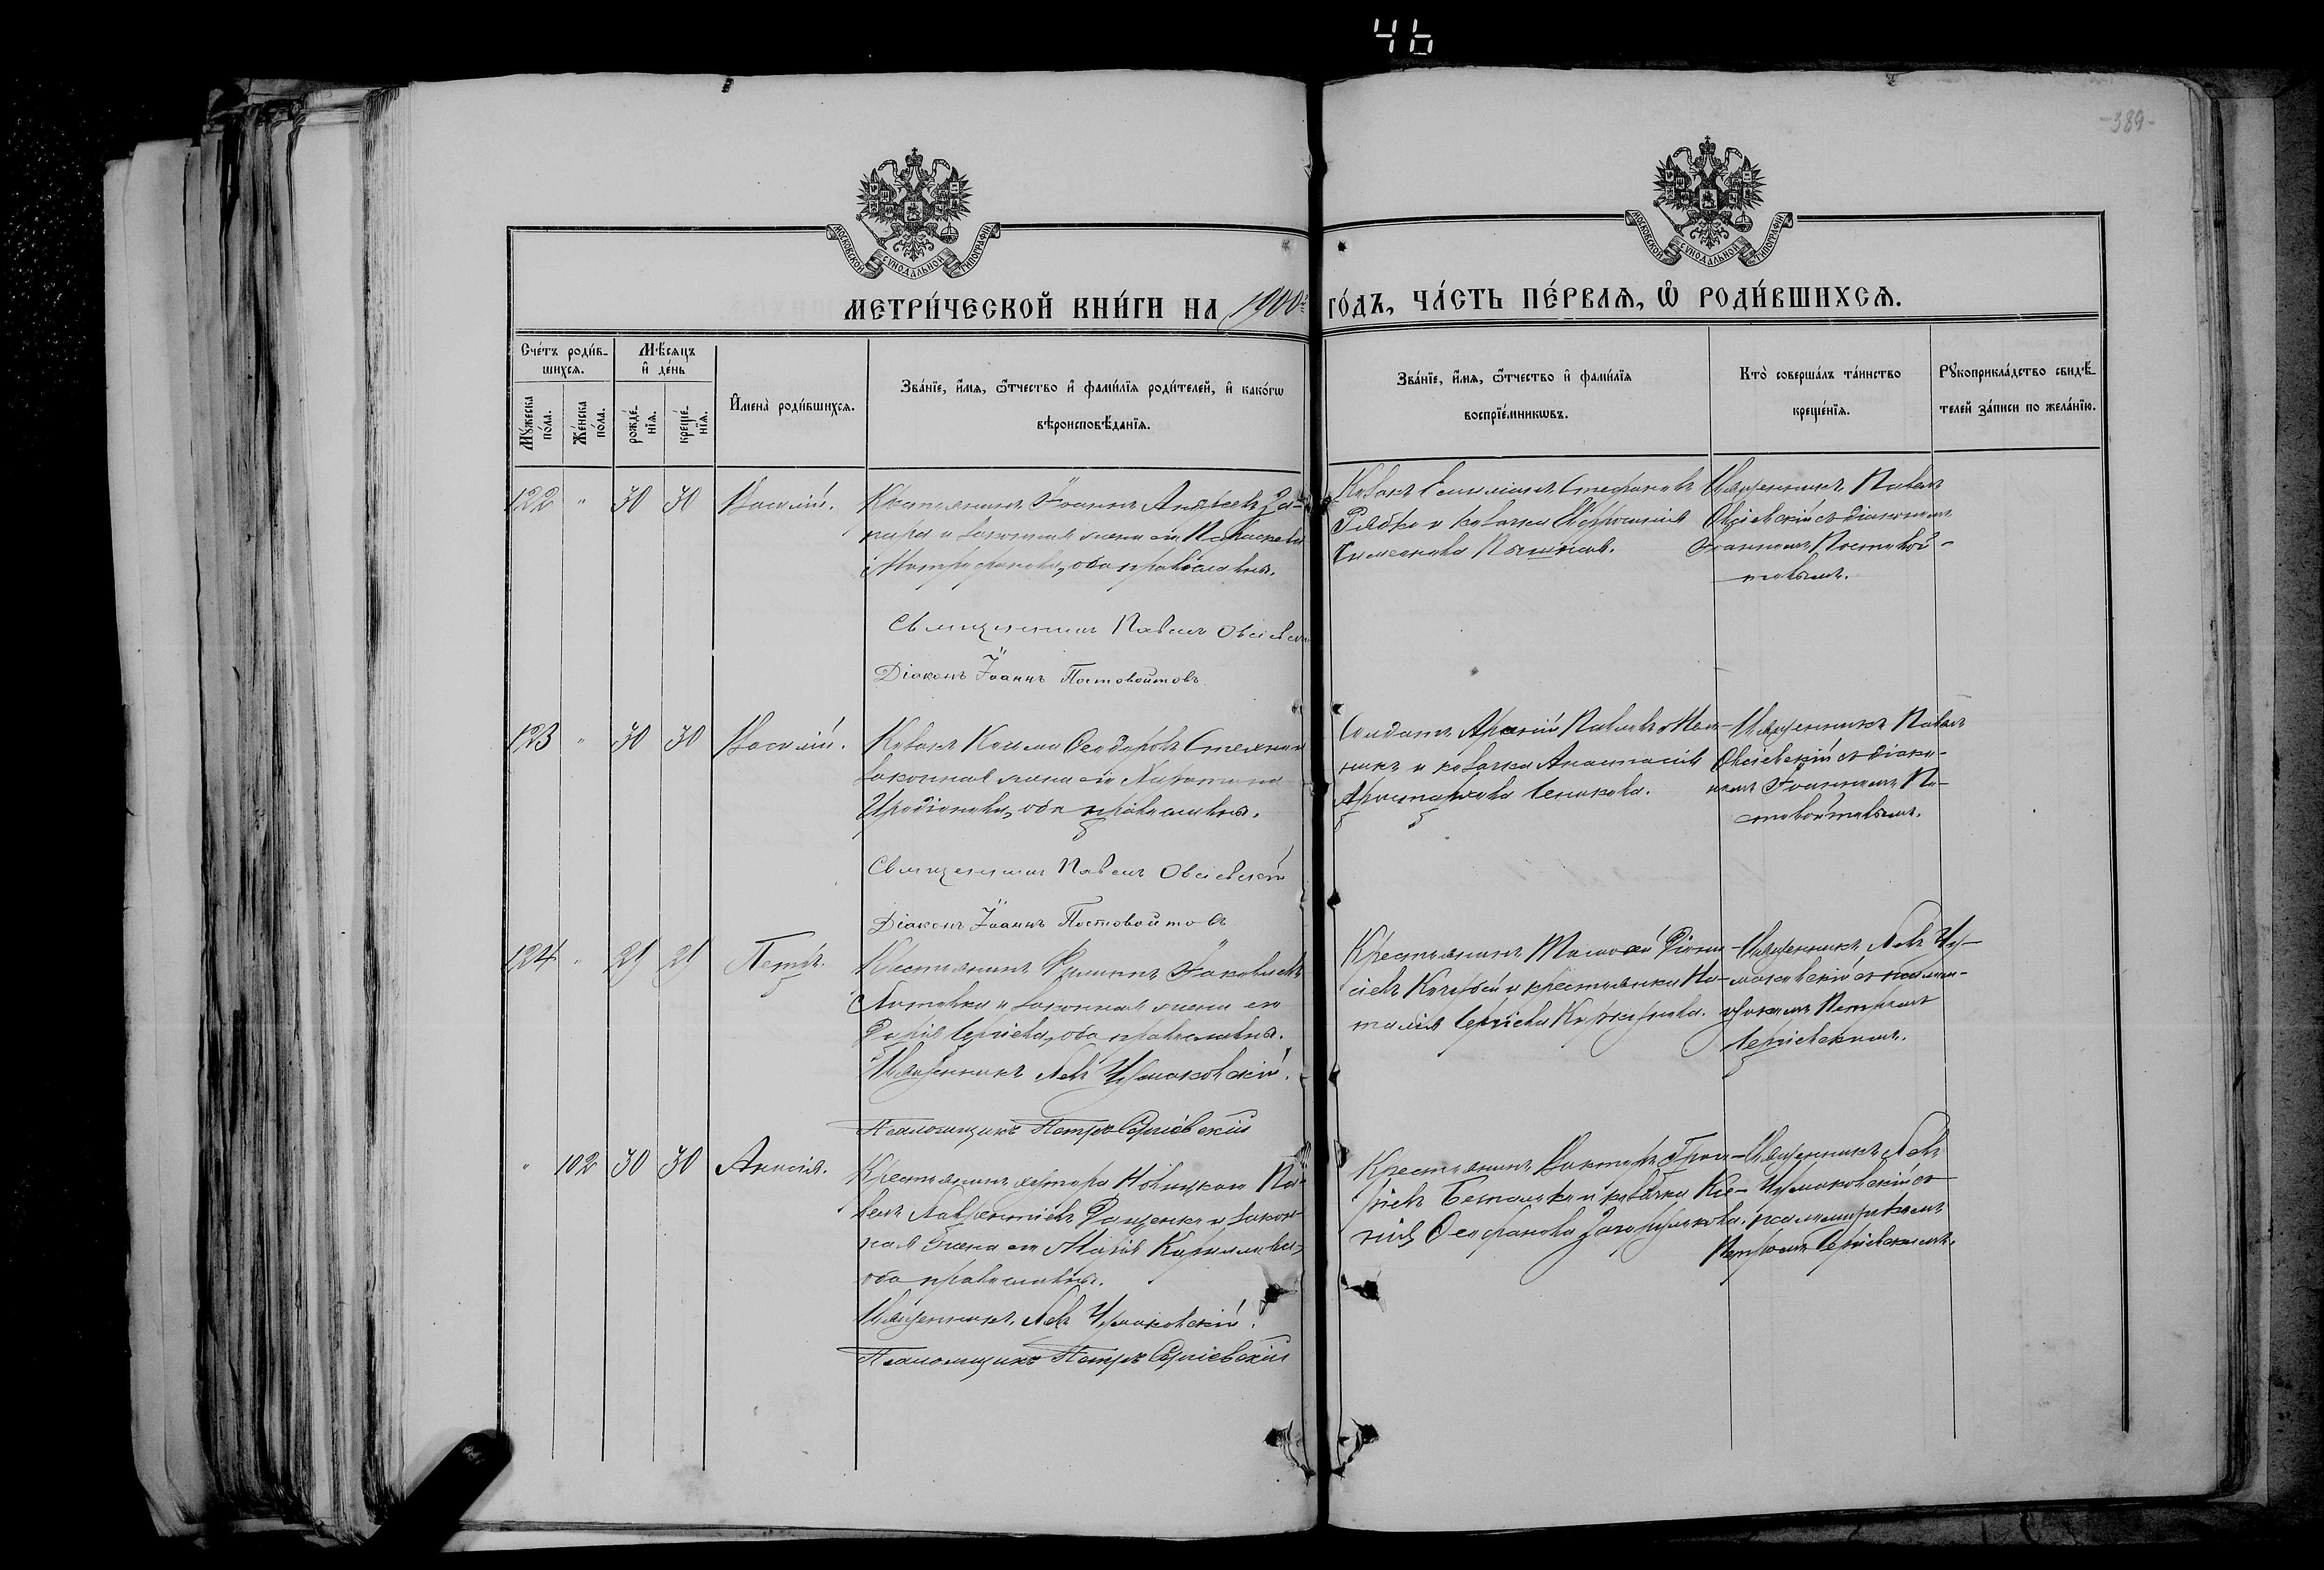 46
-389-
МОСКОВСКОЙ СѴНОДАЛЬНОЙ ТИПОГРАФІИ
МОСКОВСКОЙ СѴНОДАЛЬНОЙ ТИПОГРАФІИ
МЕТРИ́ЧЕСКОЙ КНИ́ГИ НА 1900й ГО́ДЪ, ЧА́СТЬ ПЕ́РВАѦ, Ѽ РОДИ́ВШИХСѦ.
Сче́тъ роди́в-
шихсѧ.
Мꙋ́жеска
по́ла.
Же́нска
по́ла.
Мѣ́сѧцъ
и҆ де́нь
рожде́-
нїѧ.
креще́-
нїѧ.
И҆мена̀ роди́вшихсѧ.
Зва́нїе, и҆́мѧ, ѻ҆́тчество и҆ фами́лїѧ роди́телей, и҆ како́гѡ
вѣроисповѣ́данїѧ.
Зва́нїе, и҆́мѧ, ѻ҆́тчество и҆ фами́лїѧ
воспрїе́мникѡвъ.
Кто̀ соверша́лъ та́инство
креще́нїѧ.
Рꙋкоприкла́дство свидѣ́-
телей за́писи по жела́нїю.
122 " 30 30 Василій.
Крестьянинъ Іоаннъ Андреевъ За-
и законная жена его Параскева
Митрофанова, оба православны.
Священникъ Павелъ Овсіевскій
Діаконъ Іоаннъ Постовойтовъ
Козакъ Стефановъ
Рябко и козачка Евфросинія
Священникъ Павелъ
Овсіевскій съ діакономъ
Іоанномъ Постовой-
товымъ.
123 " 30 30 Василій.
Козакъ Козьма Ѳеодоровъ
законная жена его Харитина
Иродіонова, оба православны.
Священникъ Павелъ Овсіевскій
Діаконъ Іоаннъ Постовойтовъ
Солдатъ Павловъ Мель-
никъ и козачка Анастасія
Аристархова
Священникъ Павелъ
Овсіевскій съ діако-
номъ Іоанномъ По-
стовойтовымъ.
124 " 21 21 Петръ.
Крестьянинъ Филиппъ Іаковлевъ
и законная жена его
Дарія Сергіева, оба православны.
Священникъ Левъ Чумаковскій.
Псаломщикъ Петръ Сергіевскій
Крестьянинъ Тимофей Діони-
сіевъ и крестьянка На-
талія Сергіева
Священникъ Левъ Чу-
маковскій съ псалом-
щикомъ Петромъ
Сергіевскимъ.
" 102 30 30 Анисія.
Крестьянинъ хутора Новицкаго Па-
велъ Лаврентіевъ и закон-
ная жена его Марія
оба православны.
Священникъ Левъ Чумаковскій.
Псаломщикъ Петръ Сергіевскій
Крестьянинъ Григо-
ріевъ и козачка Ксе-
нія Ѳеофанова
Священникъ Левъ
Чумаковскій съ
псаломщикомъ
Петромъ Сергіевскимъ.